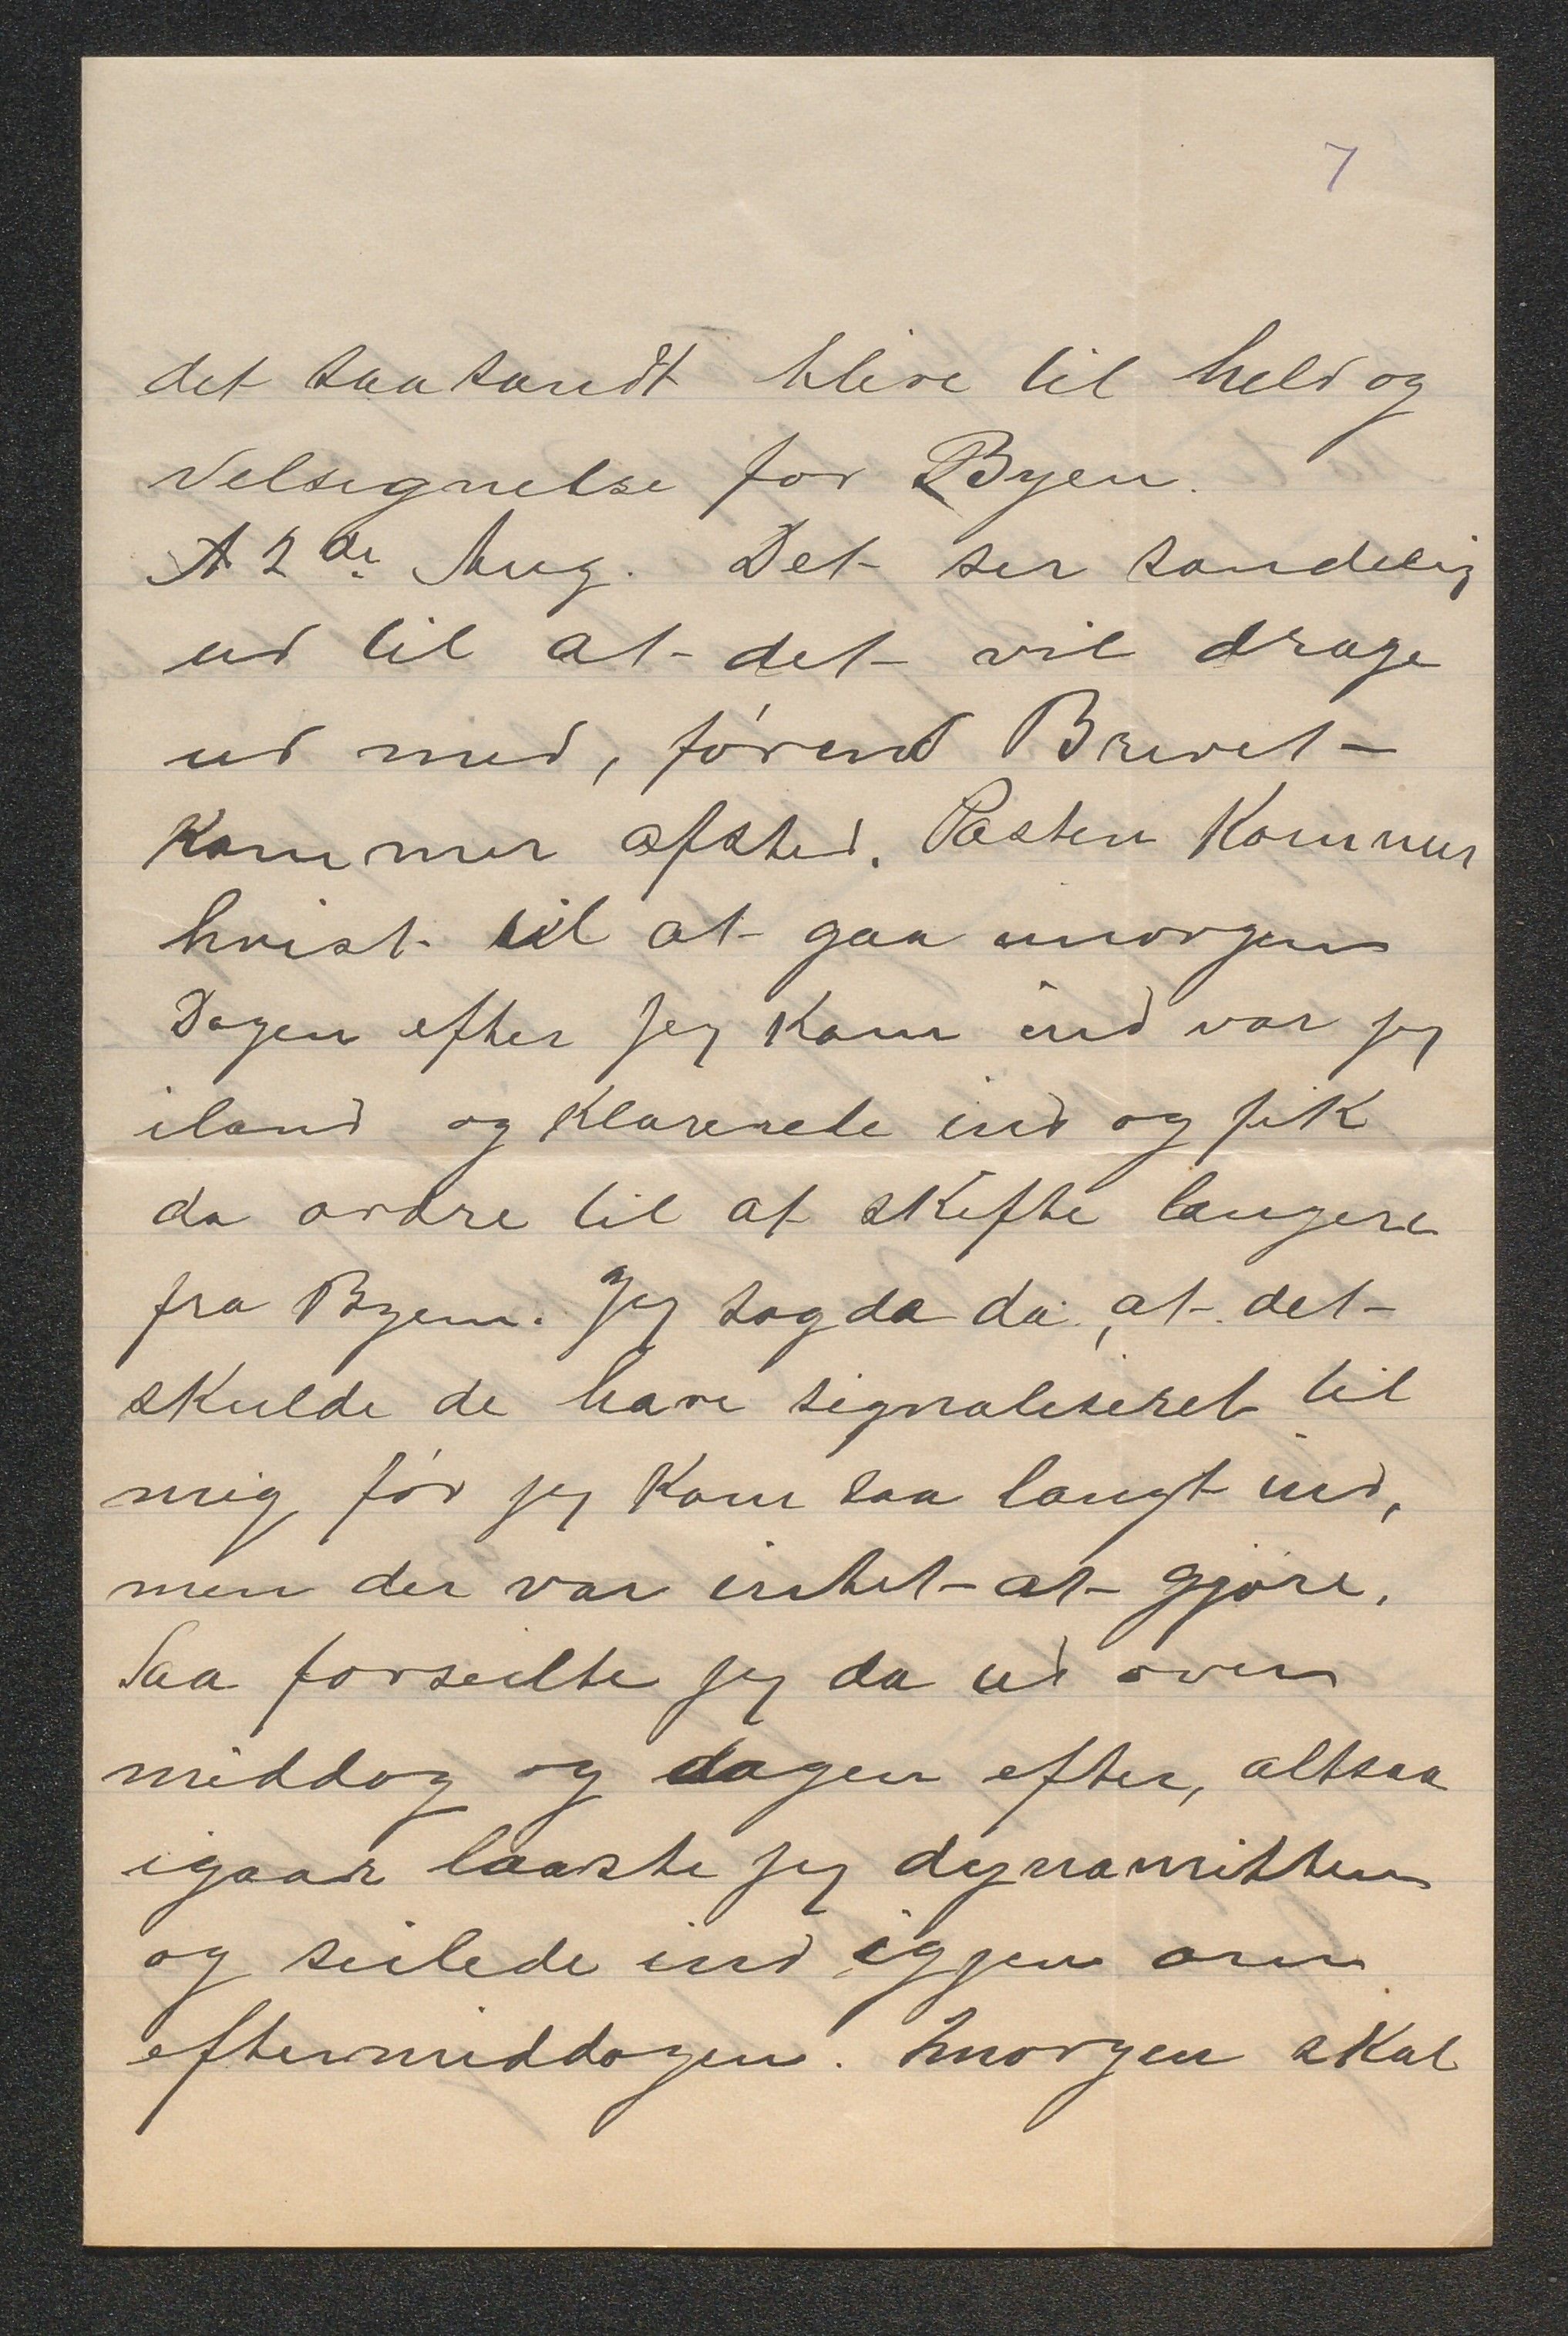 7
det saasandt blive til held og
Velsignelse for Byen.
A 2de Aug. Det ser sandelig
ud til at det vil drage
ud med, førend Brevet
kommer afsted. Posten kommer
hvist til at gaa imorgen
Dagen efter jeg kom ind var jeg
iland og klarerede ind og fik
da ordre til at skifte længere
fra Byen. Jeg sagde da, at det
skulde de have signaliseret til
mig før jeg kom saa langt ind,
men der var intet at gjøre.
Saa forseilte jeg da ud over
middag og dagen efter, altsaa
igaar losste jeg dynamitten
og seilede ind igjen om
eftermiddagen. Imorgen skal